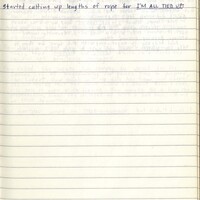 Started cutting up lengths of rope for I'M ALL TIED UP!